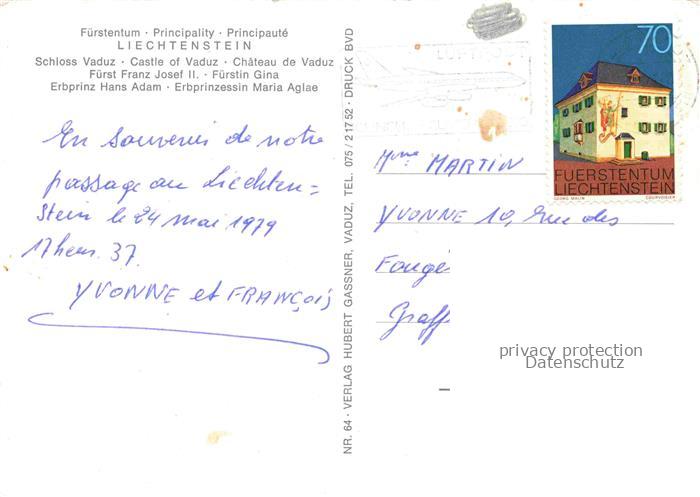 Fürstentum · Principality · Principauté
LIECHTENSTEIN
Schloss Vaduz · Castle of Vaduz · Château de Vaduz
Fürst Franz Josef II. · Fürstin Gina
Erbprinz Hans Adam · Erbprinzessin Maria Aglae
En souvenir de notre
passage au Liechten=
stein le 24 mai 1979
17 heur. 37.
YVONNE et FRANÇOIS
NR. 64 · VERLAG HUBERT GASSNER, VADUZ, TEL. 075 / 21752 · DRUCK BVD
LUFTPOST
70
FUERSTENTUM
LIECHTENSTEIN
GEORG MALIN COURVOISIER
Mme MARTIN
YVONNE 10, Rue des
Fougè
Graff
privacy protection
Datenschutz